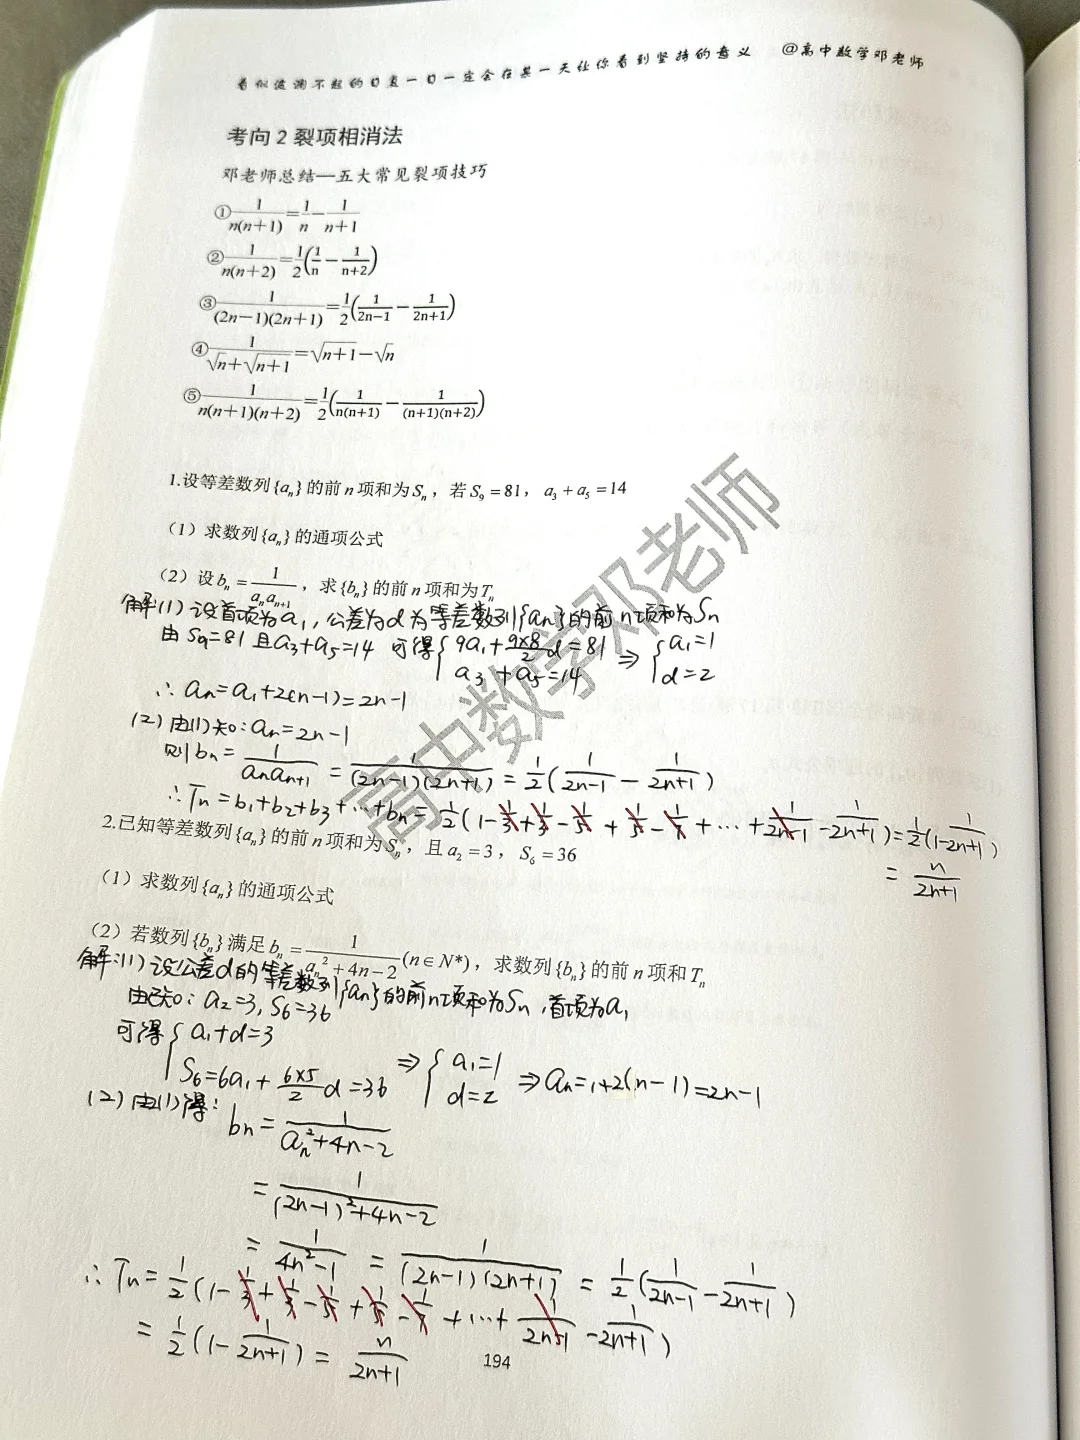 看似波澜不起的日复一日一定会在某一天让你看到坚持的意义 @高中数学邓老师
考向 2 裂项相消法
邓老师总结—五大常见裂项技巧
①1/(n(n+1))=1/n−1/(n+1)
②1/(n(n+2))=1/2(1/n−1/(n+2))
③1/((2n−1)(2n+1))=1/2(1/(2n−1)−1/(2n+1))
④1/(√n+√(n+1))=√(n+1)−√n
⑤1/(n(n+1)(n+2))=1/2(1/(n(n+1))−1/((n+1)(n+2)))
1.设等差数列{aₙ}的前n项和为Sₙ，若S₉=81，a₃+a₅=14
（1）求数列{aₙ}的通项公式
（2）设bₙ=1/(aₙaₙ₊₁)，求{bₙ}的前n项和为Tₙ
解:(1)设首项为a₁,公差为d为等差数列{an}的前n项和为Sn
由S9=81且a3+a5=14 可得{9a₁+(9×8/2)d=81 ⇒ {a₁=1
a3+a5=14 d=2
∴an=a₁+2(n-1)=2n-1
(2)由(1)知:an=2n-1
则bn=1/(an an+1)=1/((2n-1)(2n+1))=1/2(1/(2n-1)-1/(2n+1))
∴Tn=b₁+b2+b3+…+bn=1/2(1-1/3+1/3-1/5+1/5-1/7+…+1/(2n-1)-1/(2n+1))=1/2(1-1/(2n+1))
=n/(2n+1)
2.已知等差数列{aₙ}的前n项和为Sₙ，且a₂=3，S₆=36
（1）求数列{aₙ}的通项公式
（2）若数列{bₙ}满足bₙ=1/(aₙ²+4n−2)(n∈N*)，求数列{bₙ}的前n项和Tₙ
解:(1)设公差d的等差数列{an}的前n项和为Sn,首项为a₁
由已知:a2=3,S6=36
可得{a₁+d=3
S6=6a₁+(6×5/2)d=36 ⇒ {a₁=1 d=2 ⇒an=1+2(n-1)=2n-1
(2)由(1)得:
bn=1/(an²+4n-2)
=1/((2n-1)²+4n-2)
=1/(4n²-1)=1/((2n-1)(2n+1))=1/2(1/(2n-1)-1/(2n+1))
∴Tn=1/2(1-1/3+1/3-1/5+1/5-1/7+…+1/(2n-1)-1/(2n+1))
=1/2(1-1/(2n+1))=n/(2n+1)
194
高中数学邓老师